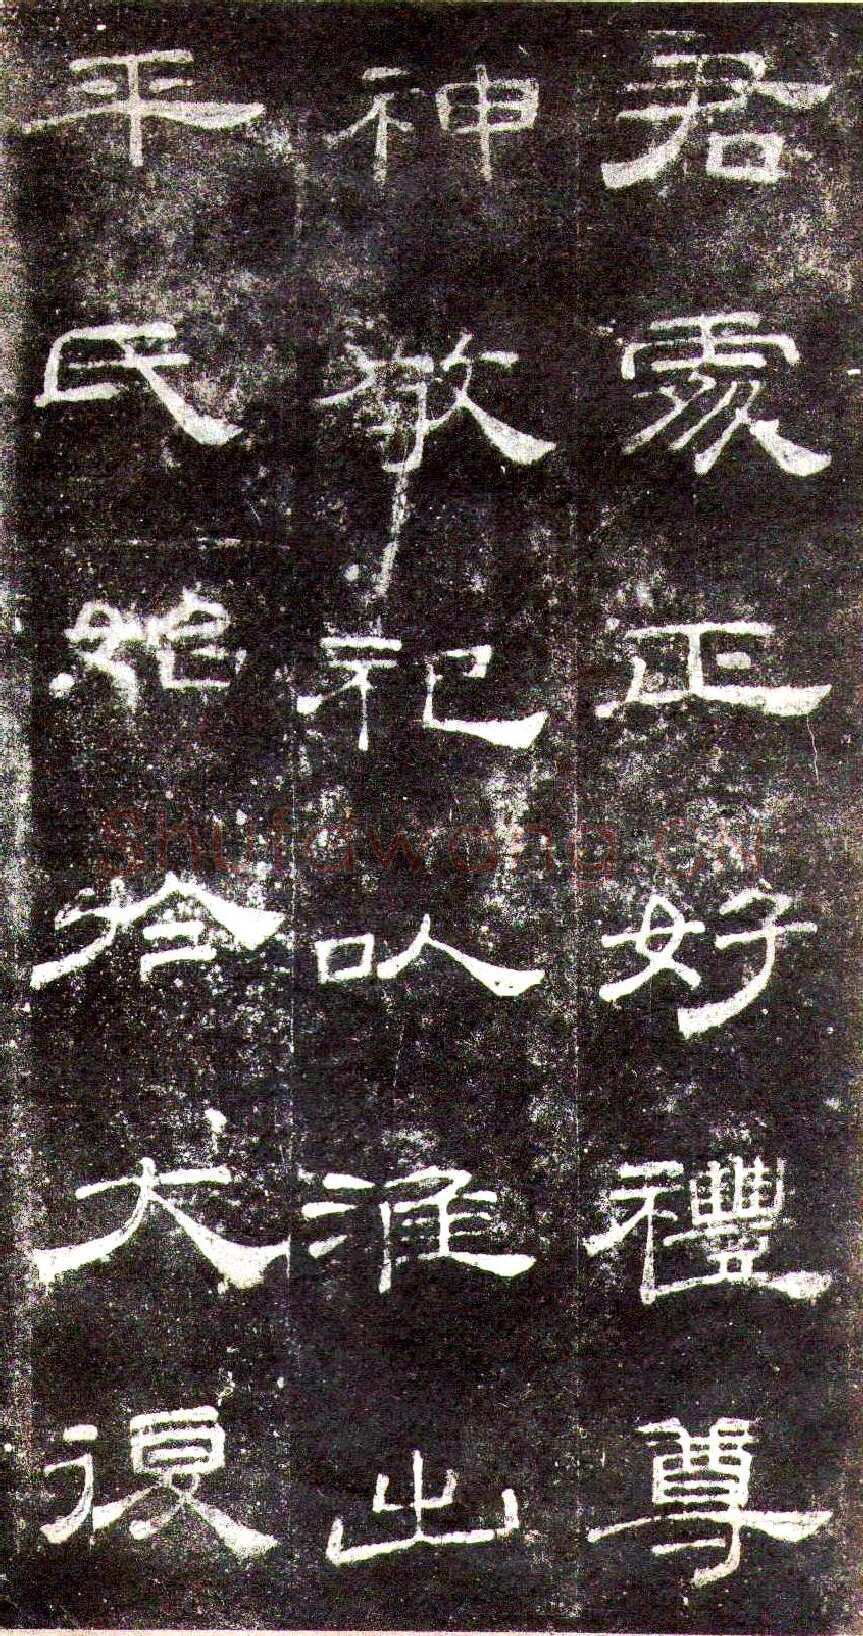 君處正好禮尊
神敬祀以淮出
平氏始於大復
Shufawang.cn